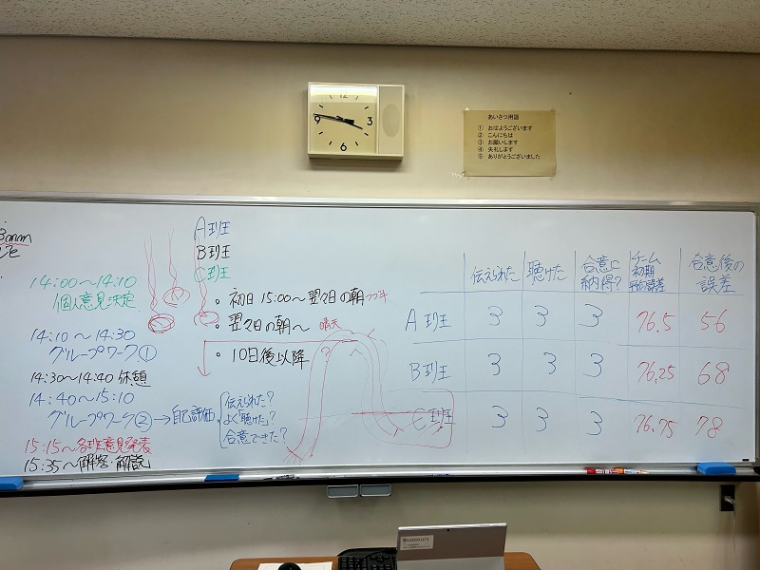 12
3
6
9
あいさつ用語
① おはようございます
② こんにちは
③ お願いします
④ 失礼します
⑤ ありがとうございました
3mm
A班
B班
C班
14:00～14:10
個人意見決定
14:10～14:30
グループワーク①
14:30～14:40 休憩
14:40～15:10
グループワーク② → 自己評価
伝えられた?
よく「聴けた」?
合意できた?
15:15～各班意見発表
15:35～解答・解説
・初日 15:00～翌々日の朝
・翌々日の朝～ 晴天
・10日後以降
伝えられた 聴けた 合意に納得? チーム初期 の誤差 合意後の誤差
A班 3 3 3 76.5 56
B班 3 3 3 76.25 68
C班 3 3 3 76.75 78